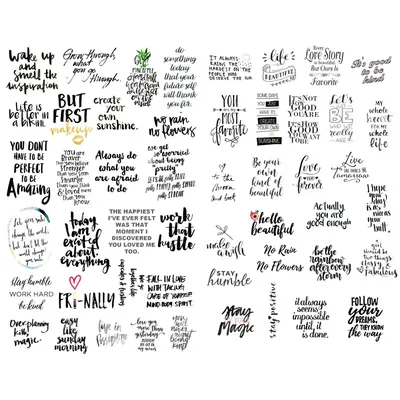 wake up
and
smell the
inspiration
Grow through
what you
go through.
do
something
today
that your
future self
will thank
you for.
IT ALWAYS
RAINS THE
HARDEST ON THE
PEOPLE WHO
DESERVE THE SUN
life is
BEAUTIFUL
EVERY
Love Story
IS BEAUTIFUL
But Ours Is
Favorite
It's good
to be
kind
Life is
better in
a bikini.
BUT
FIRST
makeup
create
your own
sunshine.
no rain
no flowers
YOU
are my
MOST
favorite
SOME DAYS
YOU JUST
HAVE TO
CREATE
YOUR OWN
SUNSHINE
IT'S NOT
WHO
YOU ARE
IT'S
HOW
GOOD
YOU
WANT
TO BE
LET'S
BE
really
my
whole
heart
my
whole
life
YOU DON'T
HAVE TO BE
PERFECT
TO BE
Amazing
You are
Braver
Than you Believe
Stronger
Than you Seem
&
Always do
what you
are afraid
to do
let's get
so worried
about being
"pretty"
LET'S BE
pretty KIND
pretty FUNNY
pretty SMART
pretty STRONG
to
the
Moon
and
back
Be your
own
kind of
beautiful
Love
you
forever
Live
the life
you
I
hope
today
is
Let your smile
change the world,
but don't let the
world change
your smile
today
I am
excited
about
everything
THE HAPPIEST
I'VE EVER FELT
WAS THAT
MOMENT I
DISCOVERED
YOU LOVED ME
TOO.
work
that
hustle
make
a wish
hello
beautiful
Actually
you are
good
enough
STAY
humble
No Rain
No Flowers
be the
rainbow
after every
storm
girl
classy &
fabulous
Stay humble
WORK HARD
Be kind
FRI-NALLY
FALL IN LOVE
WITH TAKING
CARE OF YOURSELF
MIND BODY SPIRIT.
Over planning
kills
magic.
easy
like
sunday
morning
love you
more than
yesterday
stay
Magic
stay positive
it always
seems
impossible
until it
is done.
FOLLOW
YOUR
DREAMS,
THEY KNOW
THE WAY